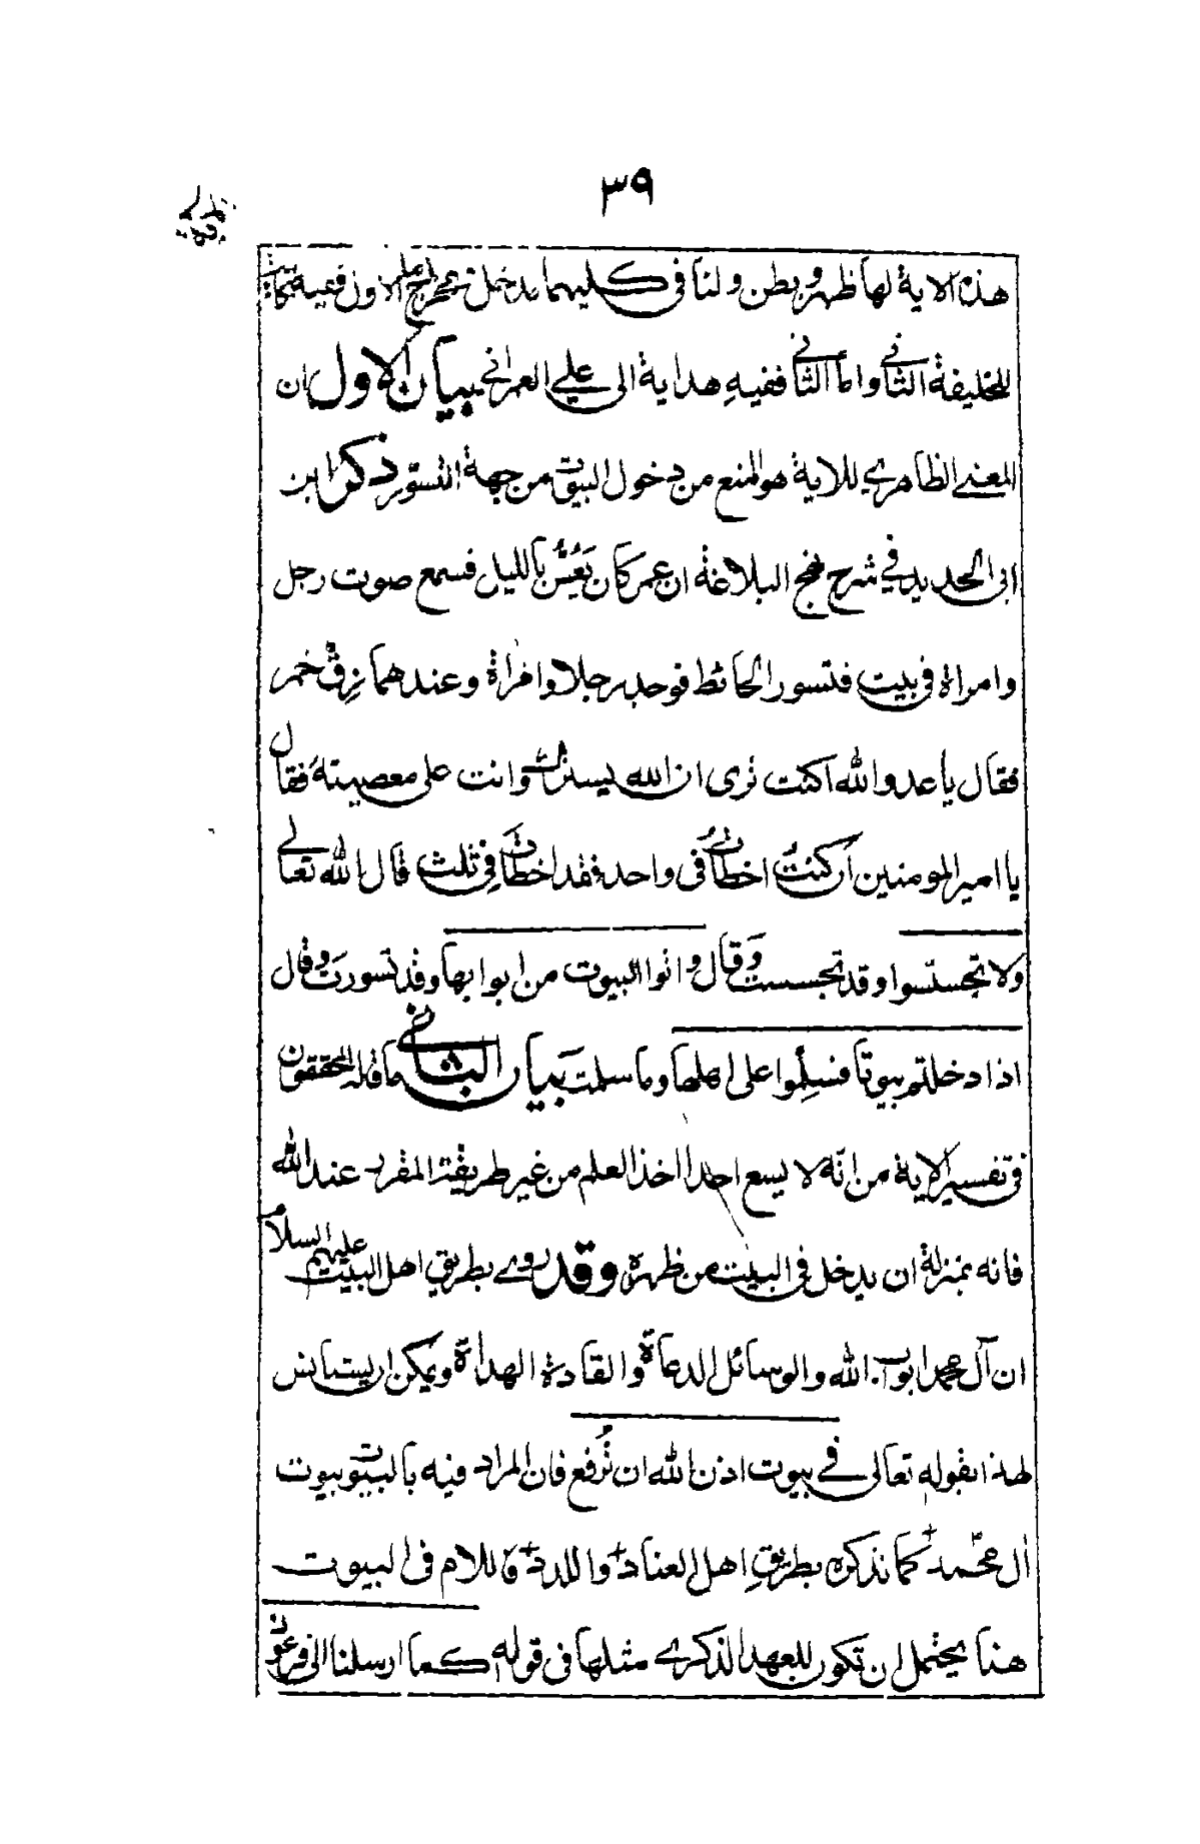 ٣٩
هذه الاية لها ظهر وبطن ولنا فى كليهما مدخل الاول ففيه
للخليفة الثانى واما الثانى ففيه هداية الى على العمرانى بيان الاول ان
المعنى الظاهرى للاية هو المنع من دخول البيوت من جهة التسور ذكر ابن
ابى الحديد فى شرح نهج البلاغة ان عمر كان يَعُسُّ بالليل فسمع صوت رجل
وامراة فى بيت فتسور الحائط فوجد رجلا وامراة وعندهما زِقُّ خمر
فقال يا عدو الله اكنت ترى ان الله يسترك وانت على معصيته فقال
يا امير المومنين ان كنتُ اخطاتُ فى واحدة فقد اخطاتَ فى ثلث قال الله تعالى
ولا تجسّسوا وقد تجسست وَقال واتوا البيوت من ابوابها وقد تسورت وقال
اذا دخلتم بيوتا فسلِّموا على اهلها وما سلمت بيان الثانى ما قاله المحققون
فى تفسير الاية من انّه لا يسع احدا اخذ العلم من غير طريقته المقرر عند الله
فانه بمنزلة ان يدخل فى البيت من ظهره وقد روى بطريق اهل البيت عليهم السلام
ان آل محمد ابواب الله والوسائل الدعاة والقادة الهداة ويمكن ان يستانس
لهذا بقوله تعالى فى بيوت اذن الله ان تُرفع فان المراد فيه بالبيوت بيوت
ال محمّد كما نذكره بطريق اهل العناد والله واللام فى البيوت
هنا يحتمل ان تكون للعهد الذكرى مثلها فى قوله كما ارسلنا الى فرعون